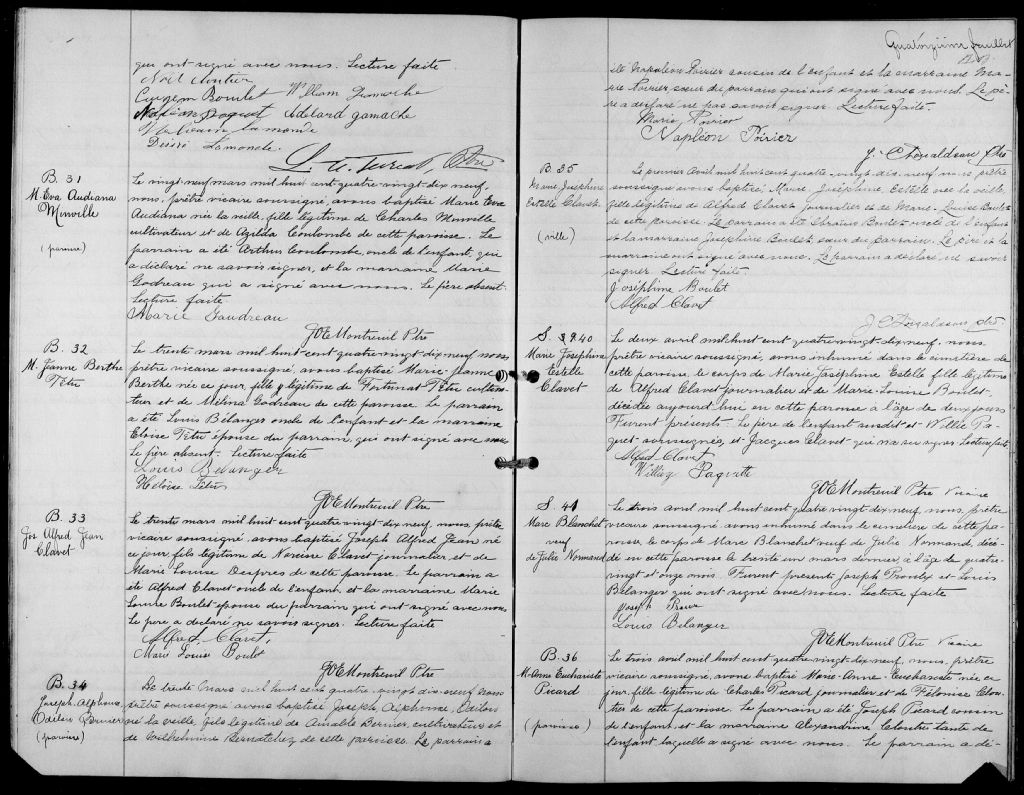 qui ont signé avec nous. Lecture faite.
Noël Cloutier
Eugène Boulet William Gamache
Adélard gamache
Lamonde
Désiré Lamonde.
Ptre
B. 31
M. Eva Audiana
Minville
(paroisse)
Le vingt-neuf mars mil huit cent quatre-vingt-dix-neuf,
nous, prêtre vicaire soussigné, avons baptisé Marie Eva
Audiana née la veille, fille légitime de Charles Minville
cultivateur et de Azilda Coulombe de cette paroisse. Le
parrain a été Arthur Coulombe, oncle de l'enfant, qui
a déclaré ne savoir signer, et la marraine Marie
Godreau qui a signé avec nous. Le père absent.
Lecture faite.
Marie Gaudreau
JOEMontreuil Ptre
B. 32
M. Jeanne Berthe
Têtu
Le trente mars mil huit cent quatre-vingt-dix-neuf nous
prêtre vicaire soussigné, avons baptisé Marie Jeanne
Berthe née ce jour, fille légitime de Fortunat Têtu cultiva-
teur et de Mélina Godreau de cette paroisse. Le parrain
a été Louis Bélanger oncle de l'enfant et la marraine
Eloïse Têtu épouse du parrain, qui ont signé avec nous
Le père absent. Lecture faite
Louis Bélanger
Héloïse Têtu
JOEMontreuil Ptre
B. 33
Jos Alfred Jean
Clavet
Le trente mars mil huit cent quatre-vingt-dix-neuf, nous, prêtre
vicaire soussigné, avons baptisé Joseph Alfred Jean, né
ce jour, fils légitime de Narcisse Clavet journalier et de
Marie Louise Després de cette paroisse. Le parrain a
été Alfred Clavet oncle de l'enfant, et la marraine Marie
Louise Boulet épouse du parrain qui ont signé avec nous
Le père a déclaré ne savoir signer. Lecture faite
Alfred Clavet
Marie Louise Boulet
JOEMontreuil Ptre
B. 34
Joseph, Alphonse,
Odilon Bernier
(paroisse)
Le trente Mars mil huit cent quatre-vingt dix-neuf nous
prêtre soussigné avons baptisé Joseph Alphonse, Odilon
né la veille, fils légitime de Amable Bernier, cultivateur et
de Wilhelmine Bernatchez de cette paroisse. Le parrain a
Quatorzième feuillet
été Napoléon Poirier cousin de l'enfant et la marraine Ma-
rie Poirier, sœur du parrain qui ont signé avec nous. Le pè-
re a déclaré ne pas savoir signer. Lecture faite.
Marie Poirier
Napoléon Poirier
J. Donaldson ptre
B. 35
Marie Joséphine
Estelle Clavet.
(ville)
Le premier avril mil huit cent quatre-vingt-dix-neuf nous prêtre
soussigné avons baptisé Marie, Joséphine, Estelle née la veille,
fille légitime de Alfred Clavet journalier et de Marie-Louise Boulet
de cette paroisse. Le parrain a été Boulet oncle de l'enfant
et la marraine Joséphine Boulet, sœur du parrain. Le père et la
marraine ont signé avec nous. Le parrain a déclaré ne savoir
signer. Lecture faite
Joséphine Boulet
Alfred Clavet
J Donaldson ptre
S. 40
Marie Joséphine
Estelle
Clavet
Le deux avril mil huit cent quatre-vingt-dix-neuf, nous,
prêtre vicaire soussigné, avons inhumé dans le cimetière de
cette paroisse, le corps de Marie Joséphine Estelle fille légitime
de Alfred Clavet journalier et de Marie-Louise Boulet,
décédée aujourd'hui en cette paroisse à l'âge de deux jours
Furent présents. Le père de l'enfant susdit et Willie Pa-
quet soussignés, et Jacques Clavet qui n'a su signer. Lecture faite.
Alfred Clavet
Williég Paquette
JOEMontreuil Ptre Vicaire
S. 41
Marc Blanchet
veuf
de Julie Normand
Le trois avril mil huit cent quatre vingt-dix neuf, nous, prêtre
vicaire soussigné avons inhumé dans le cimetière de cette pa-
roisse, le corps de Marc Blanchet veuf de Julie Normand, décé-
dé en cette paroisse le trente un mars dernier, à l'âge de quatre-
vingt et onze mois. Furent présents Joseph Proulx et Louis
Bélanger qui ont signé avec nous. Lecture faite
Joseph Proux
Louis Bélanger
JOEMontreuil Ptre Vicaire
B. 36
M-Anne Euchariste
Picard
(paroisse)
Le trois avril mil huit cent quatre-vingt-dix-neuf, nous, prêtre
vicaire soussigné, avons baptisé Marie-Anne-Euchariste née ce
jour, fille légitime de Charles Picard journalier et de Héloïse Clou-
tier de cette paroisse. Le parrain a été Joseph Picard cousin
de l'enfant, et la marraine Alexandrine Cloutier tante de
l'enfant laquelle a signé avec nous. Le parrain a dé-